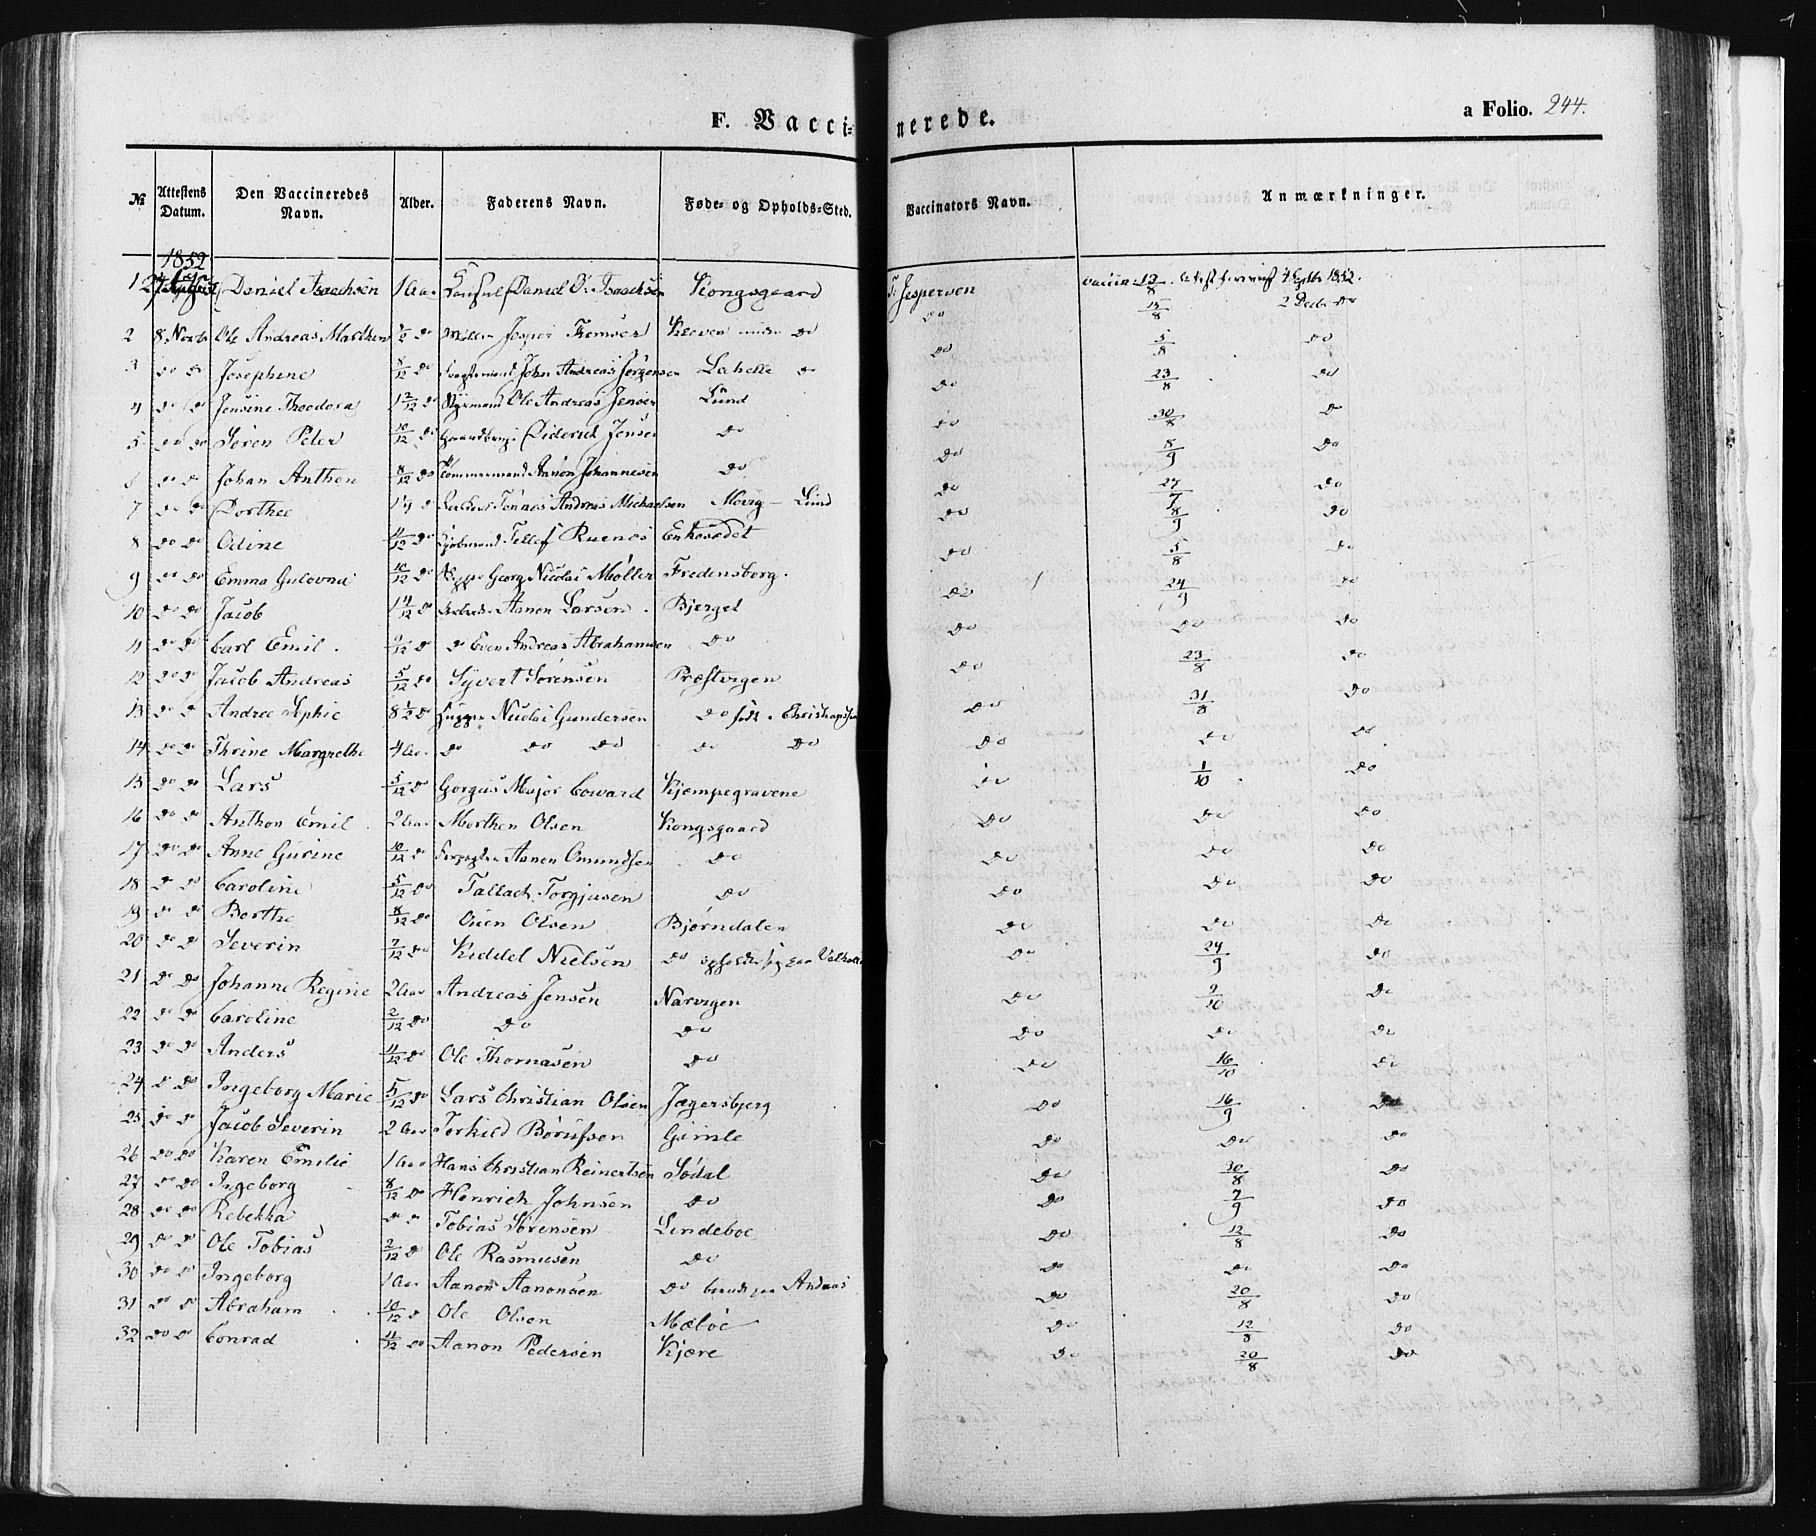 F. Vacci- nerede.
a Folio. 244.
№ Attestens Datum. Den Vaccineredes Navn. Alder. Faderens Navn. Føde- og Opholds-Sted. Vaccinators Navn. Anmærkninger.
1852
1 Daniel Isaachsen 1 Aar Consul Daniel O. Isaachsen Kongsgaard Jespersen 4 Septbr 1852.
2 8 Novb Ole Andreas Mathen do Jesper Do 15/8 2 Decbr Do
3 do do Josephine 8/12 do John Andreas Jørgensen Lahelle do do 5/8 do
4 do do Jensine Theodora 1 2/12 do Styrmand Ole Andreas Jensen Lund do 23/8 do
5 do do Søren Peter 10/12 do Diderich Jensen do do 30/8 do
6 do do Johan Anthon 8/12 do Tømmermand Anton Johannesen do do 8/9 do
7 do do Dorthea Tønnes Andreas Michaelsen Movig - Lund do 27/7 do
8 do do Odine 11/12 do Tellef Ruenes Enkesædet do 8/9 do
9 do do Emma Gulovna 10/12 do Georg Nicolai Møller Fredensborg. do 5/8 do
10 do do Jacob 1 4/12 do Aanon Larsen Bjerget do 24/9 do
11 do do Carl Emil. 9/12 do do Even Andreas Abrahamsen do do do do
12 do do Jacob Andreas 5/12 do Syvert Sørensen Præstvigen do 23/8 do
13 do do Andrea Sophie 8 1/2 do Nicolai Gundersen do do 31/8 do
14 do do Thrine Margrethe 4 Aar do do do do do do do do
15 do do Lars 5/12 do Gorgus Major Coward Kjempegravene do 1/10 do
16 do do Anthon Emil 2 Aar Morthen Olsen Kongsgaard do do do
17 do do Anne Gurine 10/12 do Aanen Omundsen do do do do
18 do do Caroline 5/12 do Tallach Torgjusen do do do do
19 do do Berthe 8/12 do Olsen Bjørndalen do do do
20 do do Severin 7/12 do Kiddel Nielsen do do 24/9 do
21 do do Johanne Regine 2 Aar Andreas Jensen Narvigen do 2/10 do
22 do do Caroline 2/12 do do do do do do
23 do do Anders 11/12 do Ole Thomasen do do 16/10 do
24 do do Ingeborg Marie 5/12 do Lars Christian Olsen Jægersbjerg do 16/9 do
25 do do Jacob Severin 2 Aar Torkild Børufsen Gimle do do do
26 do do Karen Emilie 1 Aar Hans Christian Reinertsen Sødal do 30/8 do
27 do do Ingeborg 8/12 do Henrich Johnsen do do 7/9 do
28 do do Rebekka do do Tobias Sørensen Lindeboe do 12/8 do
29 do do Ole Tobias 2/12 do Ole Rasmusen do do do do
30 do do Ingeborg 1 Aar Aanon Aanonsen do do 20/8 do
31 do do Abraham 10/12 do Ole Olsen Mæbøe do 12/8 do
32 do do Conrad 11/12 do Aanon Pedersen Kjære do 20/8 do